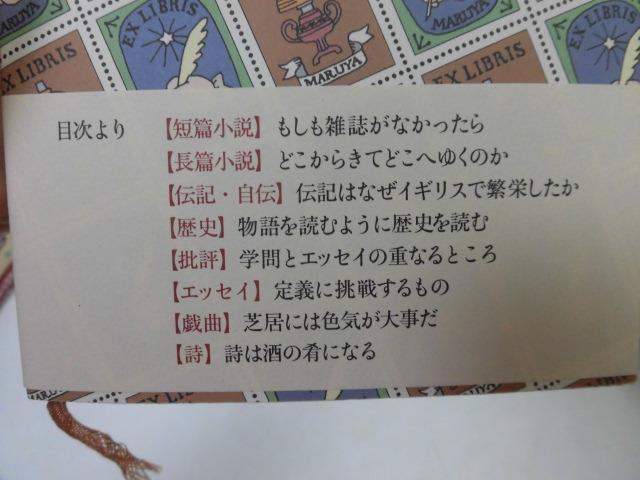 EX LIBRIS
MARUYA
MARUYA
EX LIBRIS
EX LIBRIS
目次より
【短篇小説】もしも雑誌がなかったら
【長篇小説】どこからきてどこへゆくのか
【伝記・自伝】伝記はなぜイギリスで繁栄したか
【歴史】物語を読むように歴史を読む
【批評】学問とエッセイの重なるところ
【エッセイ】定義に挑戦するもの
【戯曲】芝居には色気が大事だ
【詩】詩は酒の肴になる
MARUYA